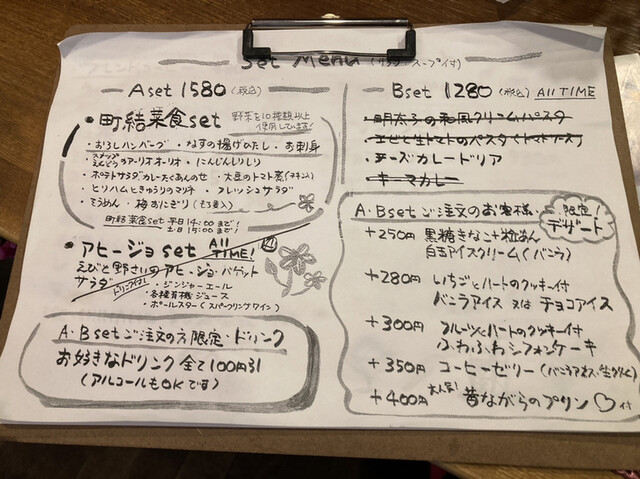 Set Menu (サラダ・スープ付)
Aset 1580 (税込)
・町結菜食set 野菜を10種類以上
使用しています!
・おろしハンバーグ ・なすの揚げびたし ・お刺身
・スナップ
えんどうのアーリオオーリオ ・にんじんしりしり
・ポテトサラダ ・大豆のトマト煮
・ヒリハムときゅうりのマリネ ・フレッシュサラダ
・そうめん ・梅おにぎり
町結菜食set 平日14:00まで!
土日15:00まで!
・アヒージョset All TIME!
えびと野さいのアヒージョ・バゲット
サラダ
ドリンク付!
・ジンジャーエール
・各種有機ジュース
・ポールスター(スパークリングワイン)
A・Bsetご注文の方限定・ドリンク
お好きなドリンク全て100円引
(アルコールもOKです)
Bset 1280 (税込) All TIME
・明太子の和風クリームパスタ
・エビと生トマトのパスタ(トマトソース)
・チーズカレードリア
・キーマカレー
A・Bsetご注文のお客様 限定!
デザート
+250円 黒糖きなこ+粒あん
白玉アイスクリーム(バニラ)
+280円 いちごとハートのクッキー付
バニラアイス 又は チョコアイス
+300円 フルーツとハートのクッキー付
ふわふわシフォンケーキ
+350円 コーヒーゼリー(バニラアイス、生クリーム)
+400円 大人気! 昔ながらのプリン♡付